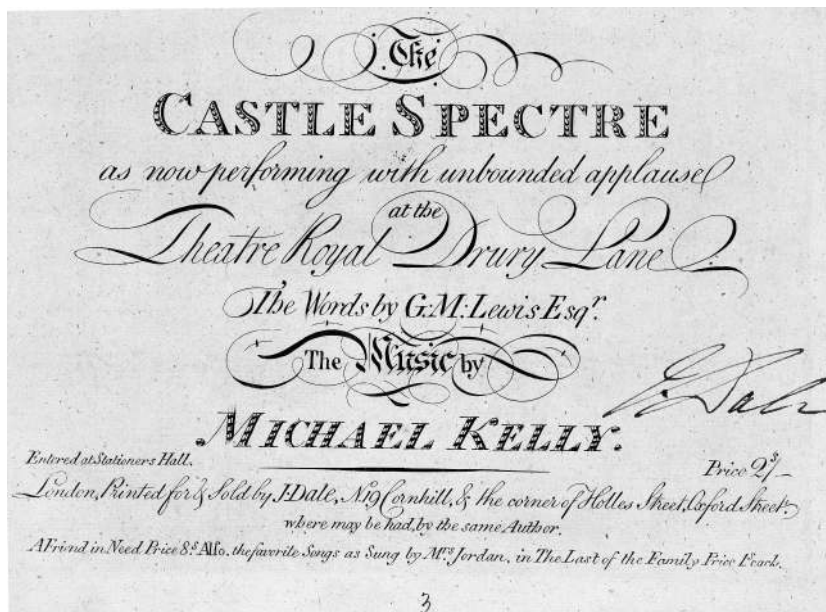 The
CASTLE SPECTRE
as now performing with unbounded applause
at the
Theatre Royal Drury Lane
The Words by G:M:Lewis Esqr.
The Music by
MICHAEL KELLY.
J. Dale
Entered at Stationers Hall.
Price 2s/-
London, Printed for & Sold by J. Dale, No 19 Cornhill, & the corner of Holles Street, Oxford Street.
where may be had, by the same Author.
A Friend in Need Price 8s Also, the favorite Songs as Sung by Mrs Jordan, in The Last of the Family Price 1s each.
3